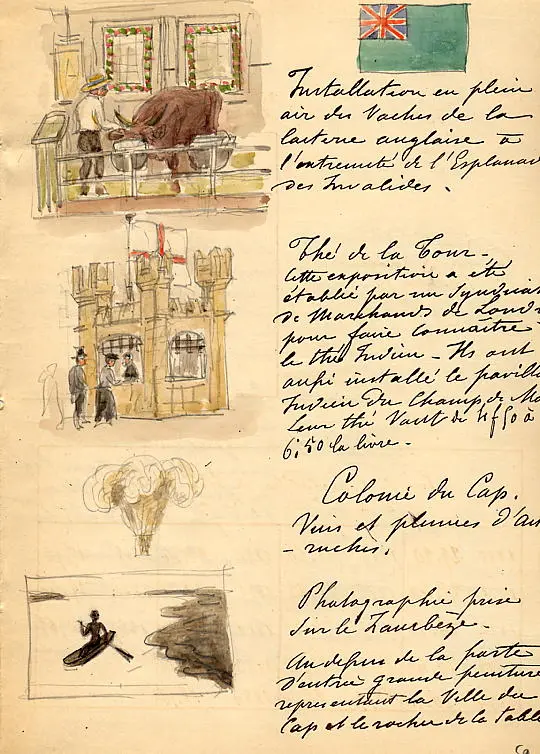 Installation en plein
air des Vaches de la
laiterie anglaise à
l'extremité de l'Esplanad
des Invalides.
Thé de la Tour -
Cette exposition a été
établie par un Syndicat
de Marchands de Londr
pour faire connaître
le thé Indien - Ils ont
aussi installé le pavill
Indien du Champ de Ma
Leur thé Vaut de 4f50 à
6,50 la livre -
Colonie du Cap.
Vins et plumes d'au
-truches.
Photographie prise
sur le Zambèze -
Au dessus de la porte
d'entrée grande peinture
representant la Ville du
Cap et le rocher de la Table